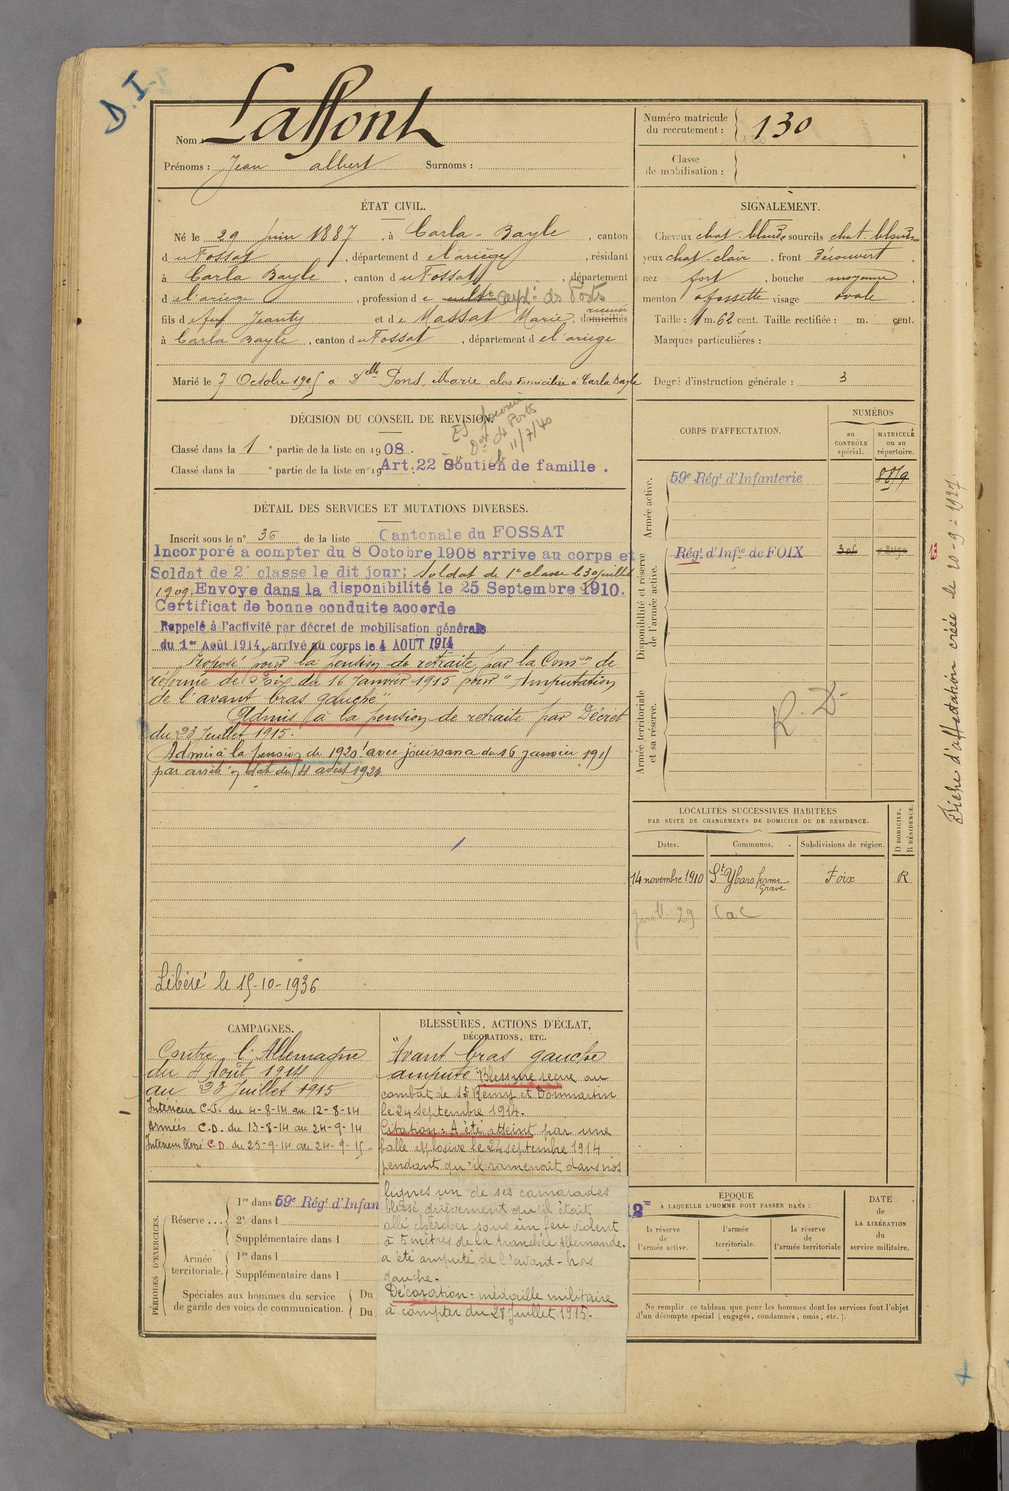 D.I.
Nom : Laffont
Prénoms : Jean albert Surnoms :
Numéro matricule du recrutement : 130
Classe de mobilisation :
ÉTAT CIVIL.
Né le 29 juin 1887, à Carla-Bayle, canton
du Fossat, département de l'ariège, résidant
à Carla Bayle, canton du Fossat, département
de l'ariège, profession de
fils de feu Jeanty et de Massat Marie, domiciliés
à Carla Bayle, canton du Fossat, département de l'ariège
Marié le 7 Octobre 190 à Dlle Pons, Marie domiciliée à Carla Bayle
SIGNALEMENT.
Cheveux chat. blonds sourcils chat. blonds
yeux chat. clair, front Découvert,
nez fort, bouche moyenne
menton à fossette visage ovale
Taille : 1 m. 62 cent. Taille rectifiée : m. cent.
Marques particulières :
Degré d'instruction générale : 3
DÉCISION DU CONSEIL DE REVISION.
Classé dans la 1e partie de la liste en 1908.
Classé dans la e partie de la liste en 19 Art. 22 Soutien de famille.
11/7/40
DÉTAIL DES SERVICES ET MUTATIONS DIVERSES.
Inscrit sous le n° 36 de la liste Cantonale du FOSSAT
Incorporé a compter du 8 Octobre 1908 arrive au corps et
Soldat de 2e classe le dit jour; Soldat de 1e classe le 30 juillet
1909. Envoye dans la disponibilité le 25 Septembre 1910.
Certificat de bonne conduite accorde
Rappelé à l'activité par décret de mobilisation générale
du 1er Août 1914, arrivé au corps le 4 AOUT 1914
Proposé pour la pension de retraite par la Comon de
réforme de Foix du 16 Janvier 1915 pour "Amputation
de l'avant bras gauche"
Admis à la pension de retraite par Décret
du 23 Juillet 1915.
Admis à la pension de 1920f avec jouissance du 16 janvier 1915
par arrêté
Libéré le 15-10-1936
CORPS D'AFFECTATION.
NUMÉROS
au CONTRÔLE spécial.
MATRICULE ou au répertoire.
Armée active.
59e Régt d'Infanterie
Disponibilité et réserve de l'armée active.
Régt d'Infie de FOIX
Armée territoriale et sa réserve.
R.D.
Fiche d'affectation créée le 20-9-1927
LOCALITÉS SUCCESSIVES HABITÉES
PAR SUITE DE CHANGEMENTS DE DOMICILE OU DE RÉSIDENCE.
D DOMICILE. R RÉSIDENCE.
Dates. Communes. Subdivisions de région.
14 novembre 1910 St Ybars ferme Grave Foix R
Juill. 29
CAMPAGNES.
Contre l'Allemagne
du 4 Août 1914
au 23 Juillet 1915
Intérieur C.S. du 4-8-14 au 12-8-14
Armées C.D. du 13-8-14 au 24-9-14
Intérieur Blessé C.D. du 25-9-14 au 24-9-15
BLESSURES, ACTIONS D'ÉCLAT,
DÉCORATIONS, ETC.
"Avant bras gauche
amputé" Blessure reçue au
combat de St Rémy et Dommartin
le 24 septembre 1914.
Citation: A été atteint par une
balle explosive le 24 septembre 1914
pendant qu'il ramenait dans nos
lignes un de ses camarades
blessé grièvement qu'il était
allé chercher sous un feu violent
à 5 mètres de la tranchée Allemande.
a été amputé de l'avant-bras
gauche.
Décoration: médaille militaire
à compter du 28 Juillet 1915.
PÉRIODES D'EXERCICES.
Réserve . . . 1re dans 59e Régt d'Infan
2e dans l
Supplémentaire dans l
Armée territoriale. 1re dans l
Supplémentaire dans l
Spéciales aux hommes du service Du
de garde des voies de communication. Du
ÉPOQUE
A LAQUELLE L'HOMME DOIT PASSER DANS :
la réserve de l'armée active.
l'armée territoriale.
la réserve de l'armée territoriale
DATE de LA LIBÉRATION du service militaire.
Ne remplir ce tableau que pour les hommes dont les services font l'objet
d'un décompte spécial (engagés, condamnés, omis, etc.).